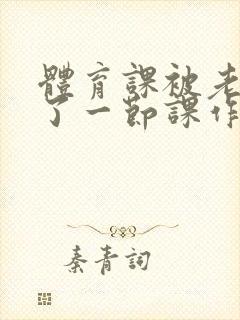 體育課被老
了一節課作
秦青詞